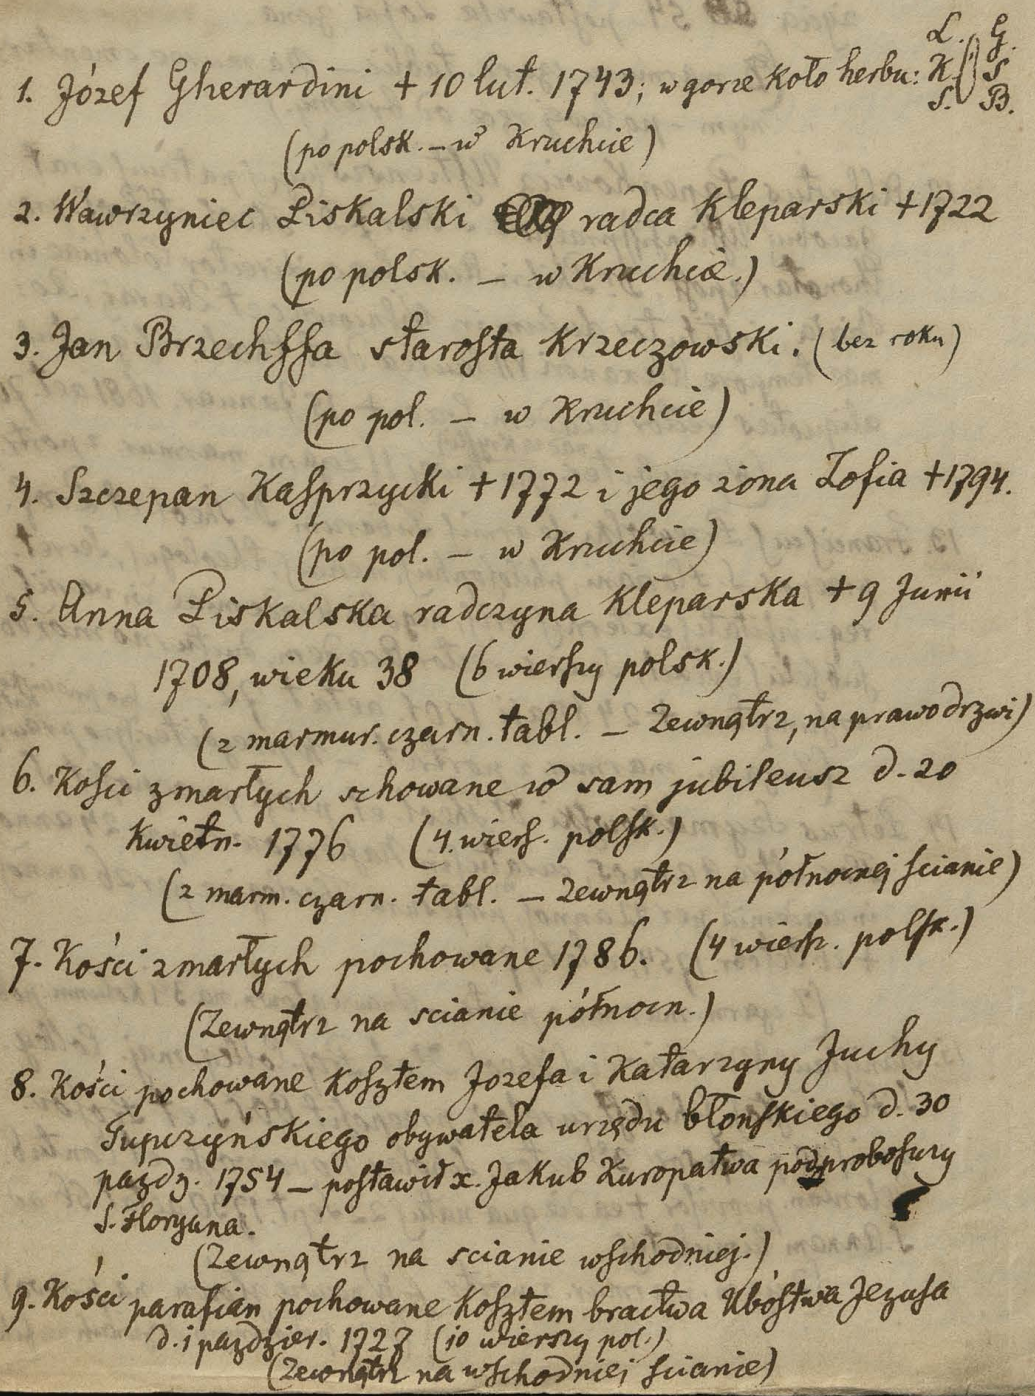 1. Józef Gherardini + 10 lut. 1743; w gorze koło herbu: L. K. S. G. S. B.
(po polsk. – w Kruchcie)
2. Wawrzyniec Piskalski radca Kleparski + 1722
(po polsk. – w Kruchcie.)
3. Jan Brzechffa starosta Krzeczowski. (bez roku)
(po pol. – w Kruchcie)
4. Szczepan Kasprzycki + 1772 i jego zona Zofia + 1794.
(po pol. – w Kruchcie)
5. Anna Piskalska radczyna Kleparska + 9 Junii
1708, wieku 38 (6 wierszy polsk.)
(z marmur. czarn. tabl. – Zewnątrz, na prawo drzwi)
6. Kości zmarłych schowane w sam jubileusz d. 20
Kwietn. 1776 (4. wiers. polsk.)
(z marm. czarn. tabl. – Zewnątrz na północnej scianie)
7. Kości zmarłych pochowane 1786. (4 wiersz. polsk.)
(Zewnątrz na scianie północn.)
8. Kości pochowane Kosztem Jozefa i Katarzyny Juchy
Tupczyńskiego obywatela urzędu błonskiego d. 30
pazdz. 1754 – postawił x. Jakub Kuropatwa podproboszczy
S. Floryana.
(Zewnątrz na scianie wschodniej.)
9. Kości parafian pochowane Kosztem bractwa Ubóstwa Jezusa
d. 1 pazdzier. 1727 (10 wierszy pol.)
(Zewnątrz na wschodniej scianie)